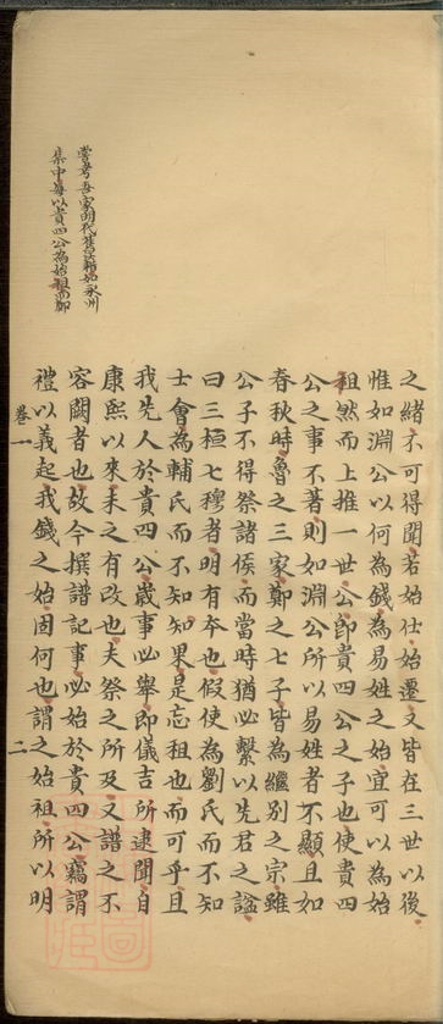 之緒不可得聞若始仕始遷又皆在三世以後
惟如淵公以何為錢為易姓之始宜可以為始
祖然而上推一世公即貴四公之子也使貴四
公之事不著則如淵公所以易姓者不顯且如
春秋時魯之三家鄭之七子皆為繼別之宗雖
公子不得祭諸侯而當時猶必繫以先君之謚
曰三桓七穆者明有本也假使為劉氏而不知
士會為輔氏而不知知果是忘祖也而可乎且
我先人於貴四公歲事必舉即儀吉所逮聞自
康熙以來未之有改也夫祭之所及又譜之不
容闕者也故今撰譜記事必始於貴四公竊謂
禮以義起我錢之始固何也謂之始祖所以明
嘗考吾家明代舊譜如永州
集中每以貴四公為始祖而
卷一
二